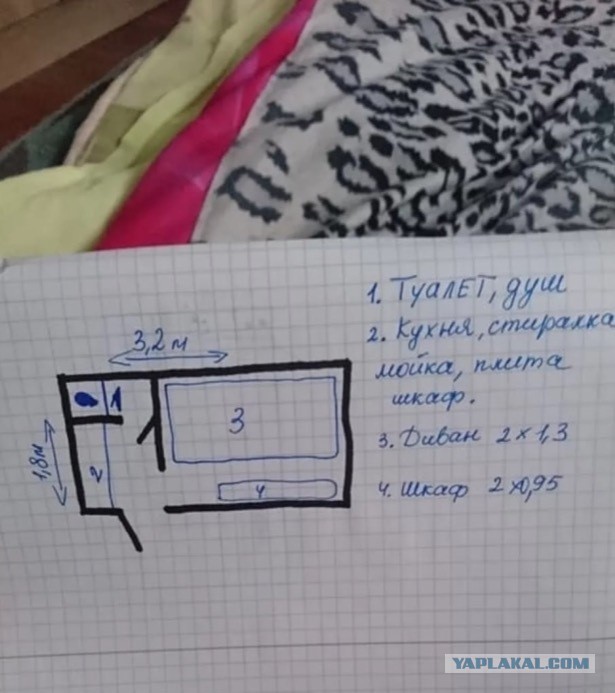 1. Туалет, душ
2. Кухня, стиралка
мойка, плита
шкаф.
3. Диван 2 x 1,3
4. Шкаф 2 x 0,95
3,2 м
1,8 м
1
2
3
4
YAPLAKAL.COM